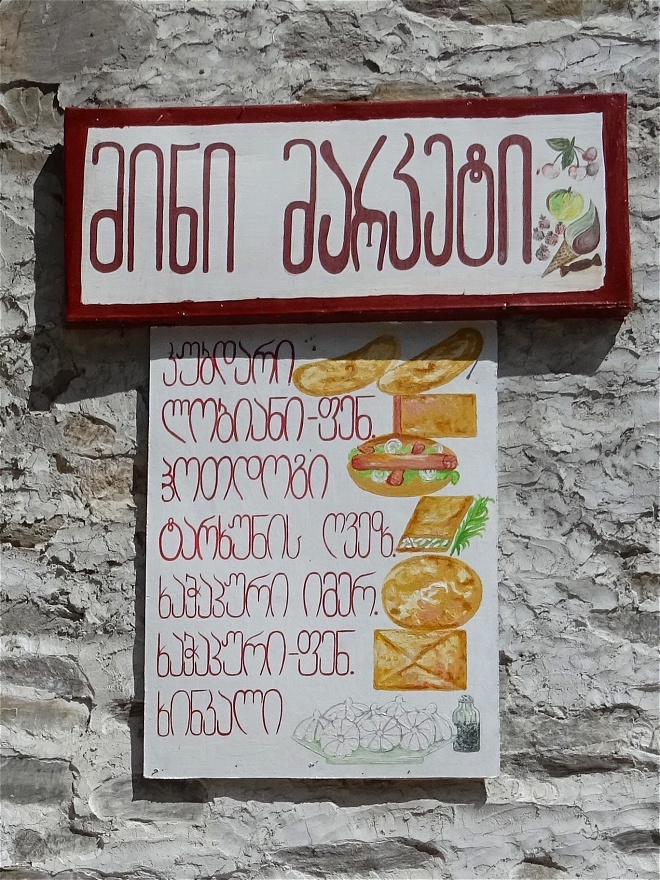 მინი მარკეტი
კუბდარი
ლობიანი-ფენ.
ჰოთდოგი
ტარხუნის ღვეზ.
ხაჭაპური იმერ.
ხაჭაპური-ფენ.
ხინკალი